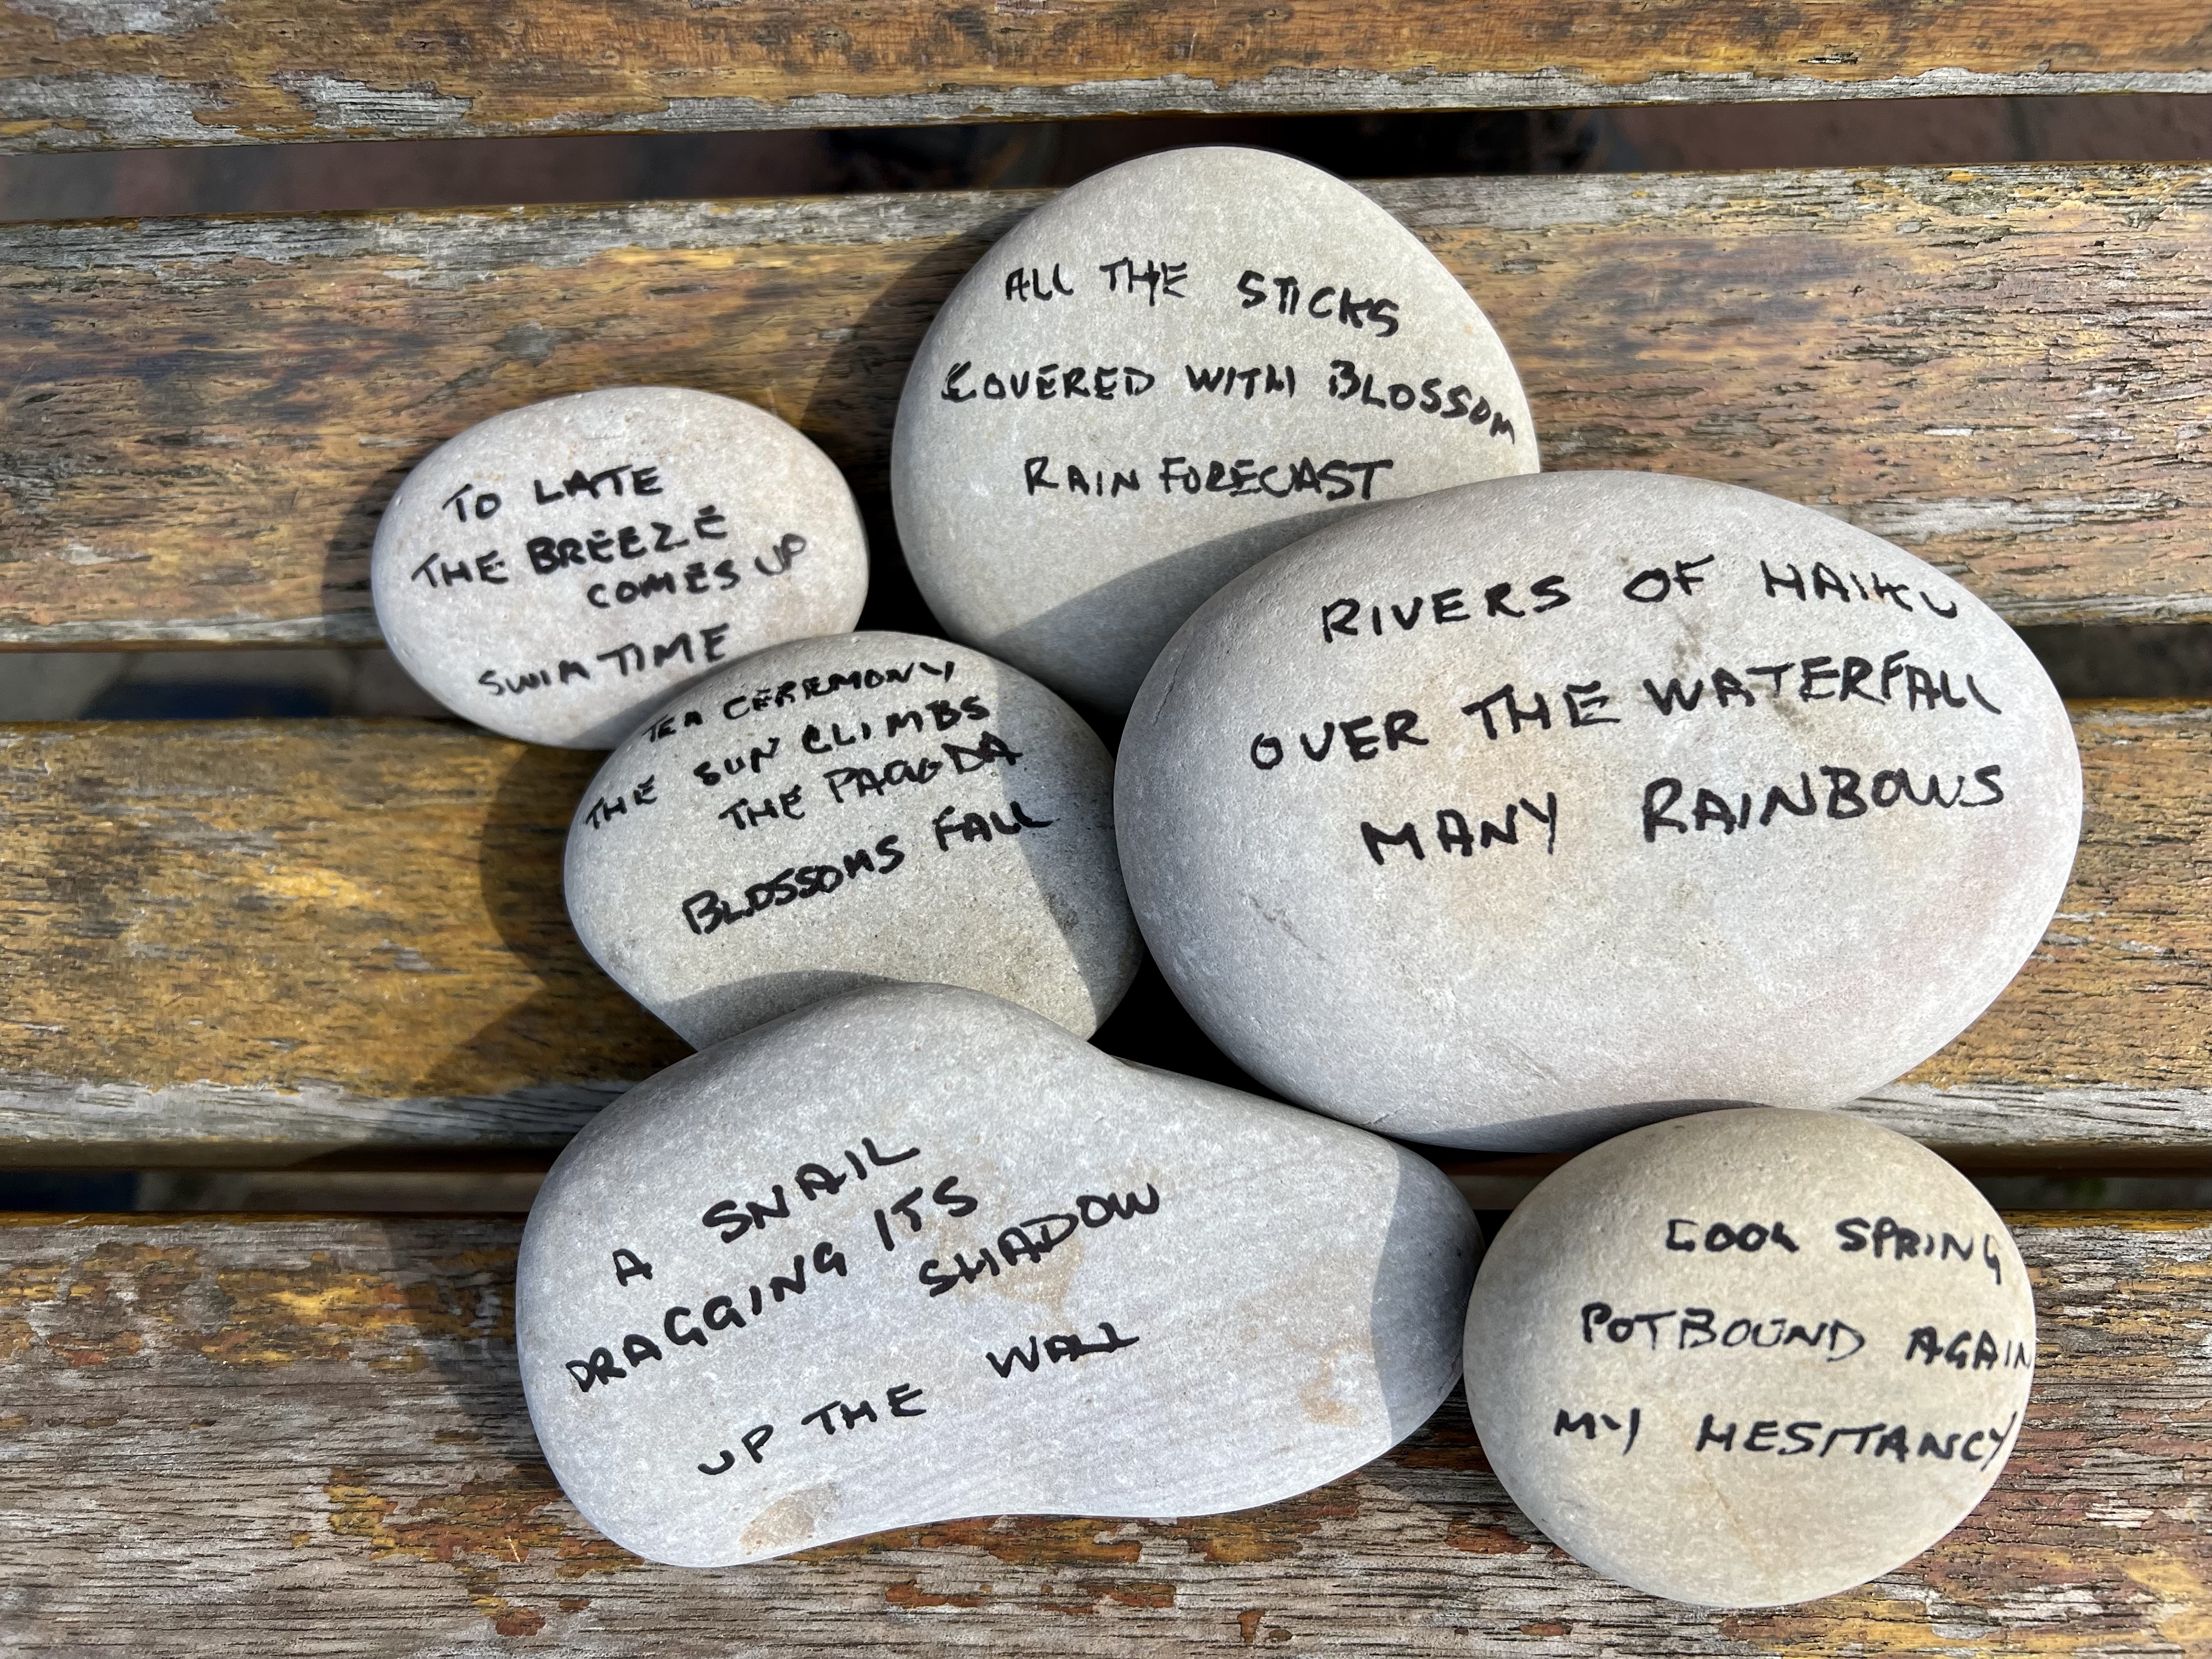 ALL THE STICKS
COVERED WITH BLOSSOM
RAIN FORECAST
TO LATE
THE BREEZE
COMES UP
SWIM TIME
RIVERS OF HAIKU
OVER THE WATERFALL
MANY RAINBOWS
TEA CEREMONY
THE SUN CLIMBS
THE PAGODA
BLOSSOMS FALL
A SNAIL
DRAGGING ITS
SHADOW
UP THE WALL
COOL SPRING
POTBOUND AGAIN
MY HESITANCY